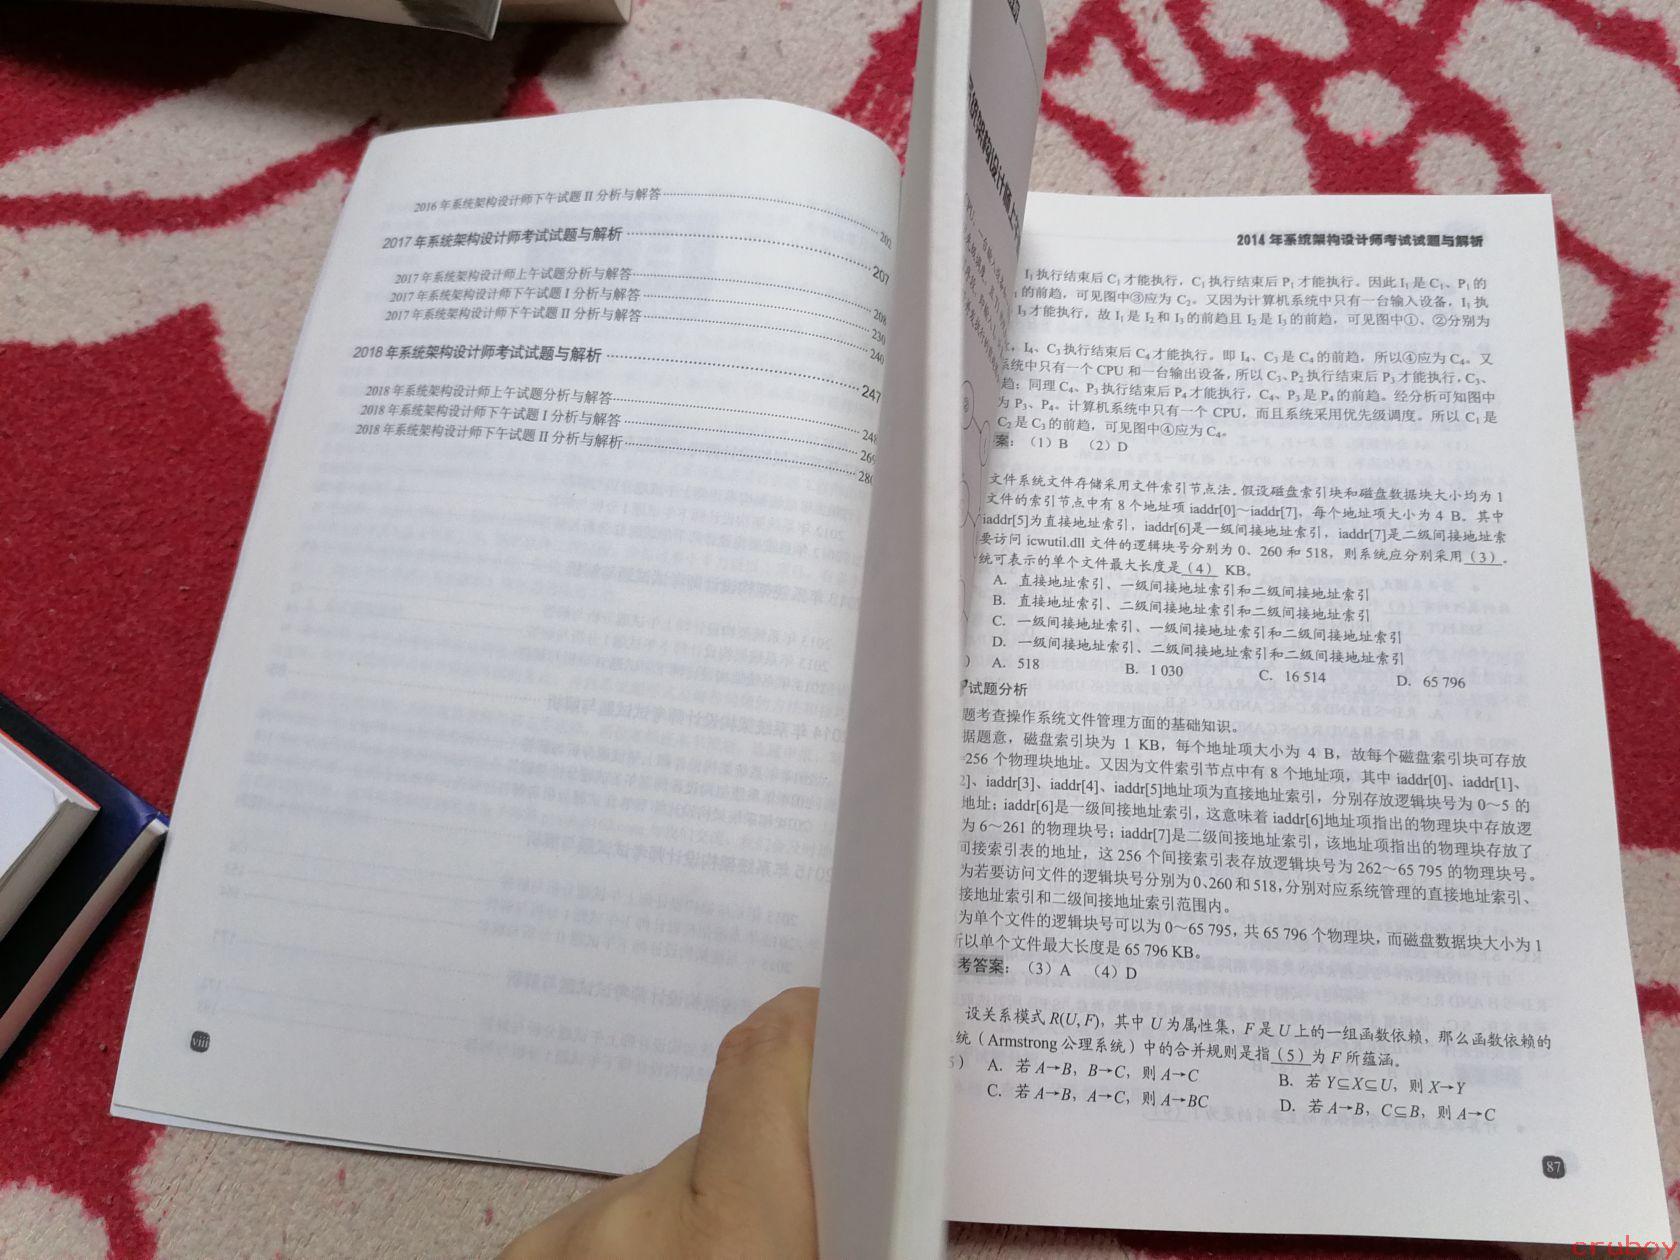 2016 年系统架构设计师下午试题 II 分析与解答 202
2017 年系统架构设计师考试试题与解析 207
2017 年系统架构设计师上午试题分析与解答 208
2017 年系统架构设计师下午试题 I 分析与解答 230
2017 年系统架构设计师下午试题 II 分析与解答 240
2018 年系统架构设计师考试试题与解析 247
2018 年系统架构设计师上午试题分析与解答 248
2018 年系统架构设计师下午试题 I 分析与解答 269
2018 年系统架构设计师下午试题 II 分析与解析 280
viii
2014 年系统架构设计师考试试题与解析
I₁ 执行结束后 C₁ 才能执行，C₁ 执行结束后 P₁ 才能执行。因此 I₁ 是 C₁、P₁ 的
的前趋，可见图中③应为 C₂。又因为计算机系统中只有一台输入设备，I₁ 执
I₃ 才能执行，故 I₁ 是 I₂ 和 I₃ 的前趋且 I₂ 是 I₃ 的前趋，可见图中①、②分别为
，I₄、C₃ 执行结束后 C₄ 才能执行。即 I₄、C₃ 是 C₄ 的前趋，所以④应为 C₄。又
系统中只有一个 CPU 和一台输出设备，所以 C₃、P₂ 执行结束后 P₃ 才能执行，C₃、
趋；同理 C₄、P₃ 执行结束后 P₄ 才能执行，C₄、P₃ 是 P₄ 的前趋。经分析可知图中
为 P₃、P₄。计算机系统中只有一个 CPU，而且系统采用优先级调度。所以 C₁ 是
C₂ 是 C₃ 的前趋，可见图中④应为 C₄。
案：（1）B （2）D
文件系统文件存储采用文件索引节点法。假设磁盘索引块和磁盘数据块大小均为 1
文件的索引节点中有 8 个地址项 iaddr[0]～iaddr[7]，每个地址项大小为 4 B。其中
iaddr[5]为直接地址索引，iaddr[6]是一级间接地址索引，iaddr[7]是二级间接地址索
要访问 icwutil.dll 文件的逻辑块号分别为 0、260 和 518，则系统应分别采用（3）。
统可表示的单个文件最大长度是（4） KB。
A．直接地址索引、一级间接地址索引和二级间接地址索引
B．直接地址索引、二级间接地址索引和二级间接地址索引
C．一级间接地址索引、一级间接地址索引和二级间接地址索引
D．一级间接地址索引、二级间接地址索引和二级间接地址索引
） A．518 B．1 030 C．16 514 D．65 796
试题分析
题考查操作系统文件管理方面的基础知识。
据题意，磁盘索引块为 1 KB，每个地址项大小为 4 B，故每个磁盘索引块可存放
=256 个物理块地址。又因为文件索引节点中有 8 个地址项，其中 iaddr[0]、iaddr[1]、
2]、iaddr[3]、iaddr[4]、iaddr[5]地址项为直接地址索引，分别存放逻辑块号为 0～5 的
地址；iaddr[6]是一级间接地址索引，这意味着 iaddr[6]地址项指出的物理块中存放逻
为 6～261 的物理块号；iaddr[7]是二级间接地址索引，该地址项指出的物理块存放了
间接索引表的地址，这 256 个间接索引表存放逻辑块号为 262～65 795 的物理块号。
为若要访问文件的逻辑块号分别为 0、260 和 518，分别对应系统管理的直接地址索引、
接地址索引和二级间接地址索引范围内。
为单个文件的逻辑块号可以为 0～65 795，共 65 796 个物理块，而磁盘数据块大小为 1
所以单个文件最大长度是 65 796 KB。
考答案：（3）A （4）D
设关系模式 R(U, F)，其中 U 为属性集，F 是 U 上的一组函数依赖，那么函数依赖的
统（Armstrong 公理系统）中的合并规则是指（5）为 F 所蕴涵。
5） A．若 A→B，B→C，则 A→C B．若 Y⊆X⊆U，则 X→Y
C．若 A→B，A→C，则 A→BC D．若 A→B，C⊆B，则 A→C
87
cruboy